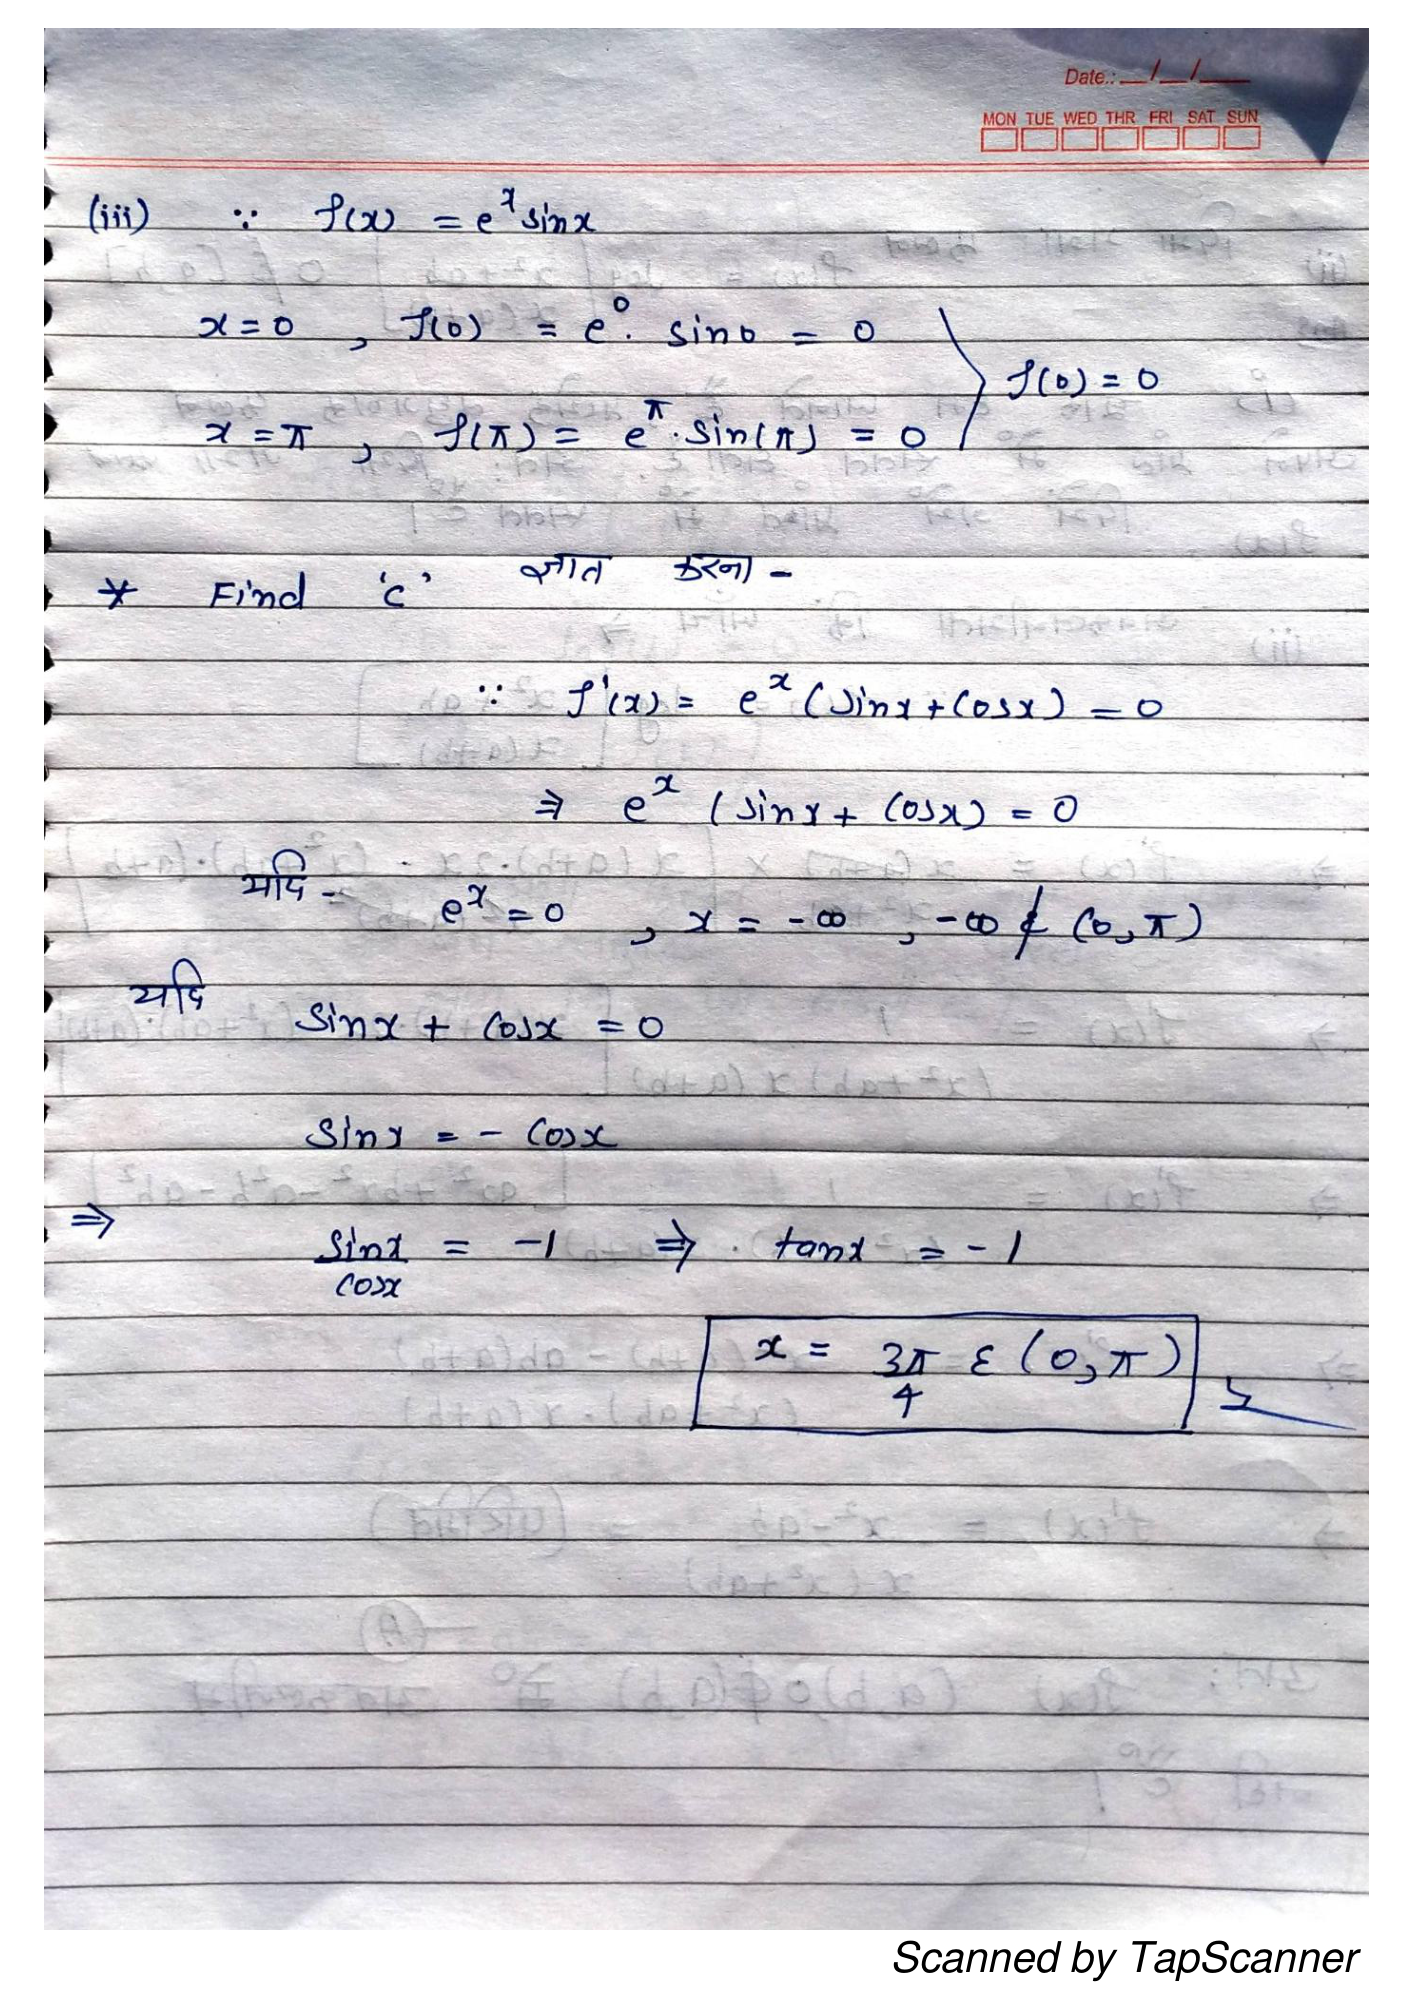 Date.: __/__/____
MON TUE WED THR FRI SAT SUN
(iii) ∵ f(x) = e^x sinx
x=0 , f(0) = e^0. sin0 = 0
f(0) = 0
x=π , f(π) = e^π.sin(π) = 0
* Find 'c' ज्ञात करना -
∵ f'(x) = e^x (sinx+cosx) = 0
⇒ e^x (sinx + cosx) = 0
यदि - e^x = 0 , x = -∞ , -∞ ∉ (0, π)
यदि sinx + cosx = 0
sinx = - cosx
⇒ sinx/cosx = -1 ⇒ tanx = -1
x = 3π/4 ε (0, π)
Scanned by TapScanner